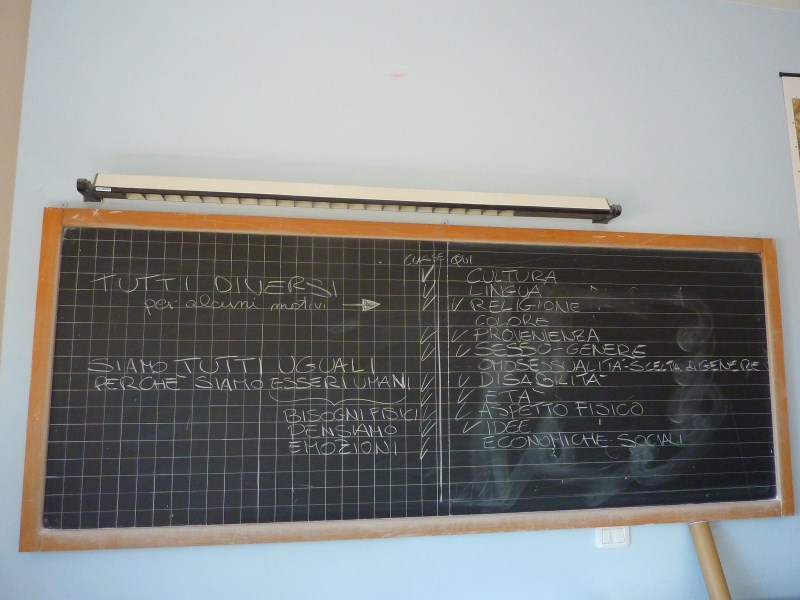 TUTTI DIVERSI
per alcuni motivi →
SIAMO TUTTI UGUALI
PERCHÈ SIAMO ESSERI UMANI
BISOGNI FISICI
PENSIAMO
EMOZIONI
CLASSE QUI
CULTURA
LINGUA
RELIGIONE
COLORE
PROVENIENZA
SESSO-GENERE
OMOSESSUALITÀ-SCELTA di GENERE
DISABILITÀ
ETÀ
ASPETTO FISICO
IDEE
ECONOMICHE-SOCIALI